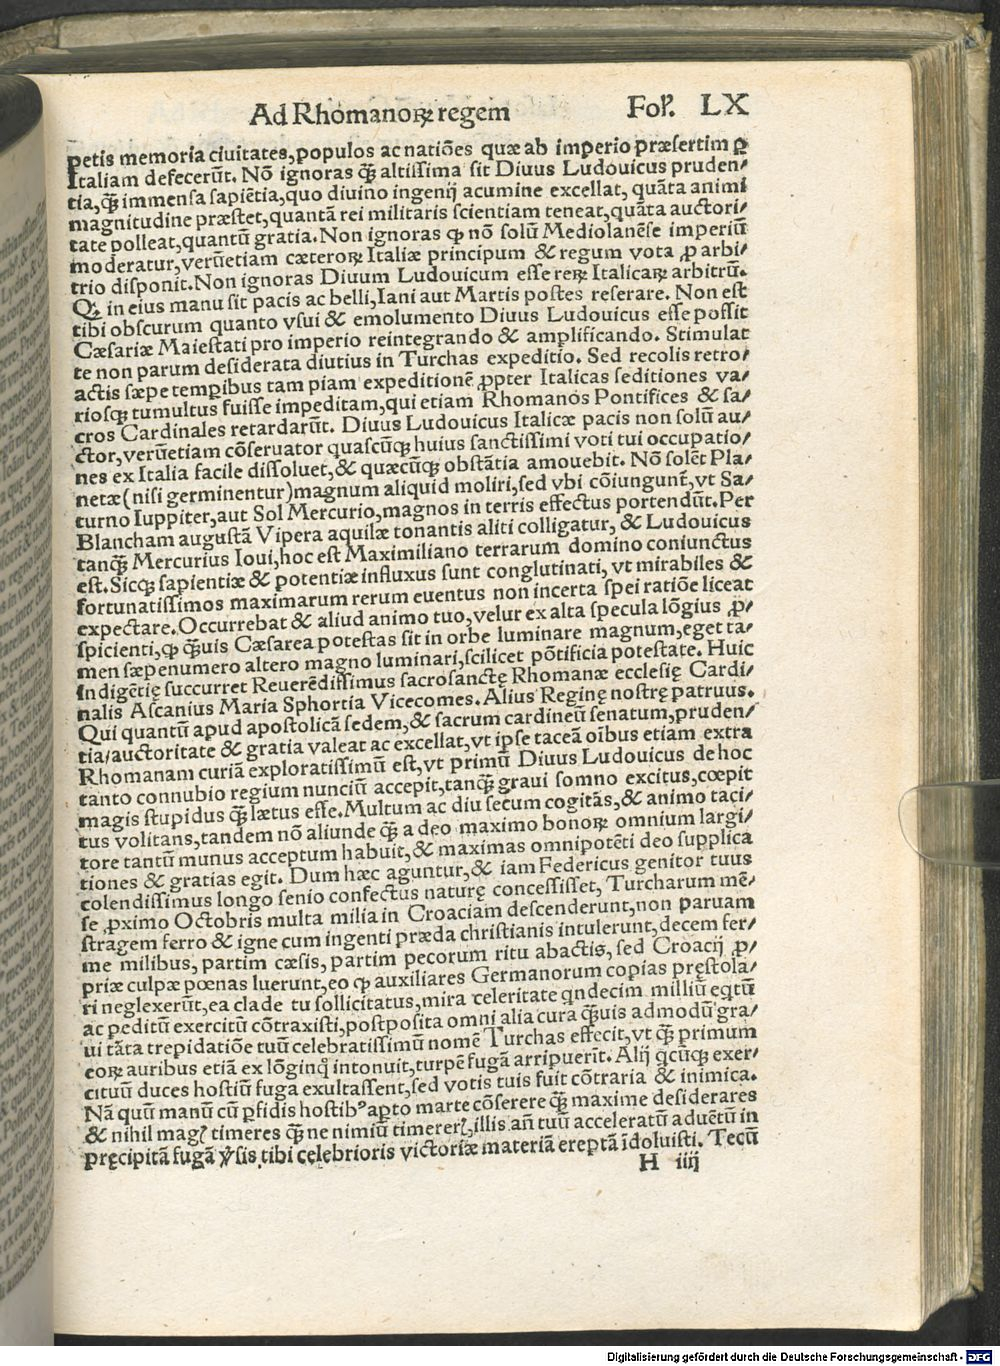 Ad Rhomanoꝝ regem Folꝰ. LX
petis memoria ciuitates,populos ac natiões quæ ab imperio præsertim ꝑ
Italiam defecerũt. Nõ ignoras ꝙ̃ altissima sit Diuus Ludouicus pruden/
tia,ꝙ̃ immensa sapiẽtia,quo diuino ingenij acumine excellat, quãta animi
magnitudine præstet,quantã rei militaris scientiam teneat,quãta auctori/
tate polleat,quantũ gratia.Non ignoras ꝙ nõ solũ Mediolanẽse imperiũ
moderatur,verũetiam cæteroꝝ Italiæ principum & regum vota ꝓ arbi/
trio disponit.Non ignoras Diuum Ludouicum esse reꝝ Italicaꝝ arbitrũ.
Q; in eius manu sit pacis ac belli,Iani aut Martis postes reserare. Non est
tibi obscurum quanto vsui & emolumento Diuus Ludouicus esse possit
Cæsariæ Maiestati pro imperio reintegrando & amplificando. Stimulat
te non parum desiderata diutius in Turchas expeditio. Sed recolis retro/
actis sæpe tempibus tam piam expeditionẽ ꝓpter Italicas seditiones va/
riosqꝫ tumultus fuisse impeditam,qui etiam Rhomanos Pontifices & sa/
cros Cardinales retardarũt. Diuus Ludouicus Italicæ pacis non solũ au/
ctor,verũetiam cõseruator quascũqꝫ huius sanctissimi voti tui occupatio/
nes ex Italia facile dissoluet,& quæcũqꝫ obstãtia amouebit. Nõ solẽt Pla/
netæ(nisi germinentur)magnum aliquid moliri,sed vbi cõiungunt̃,vt Sa/
turno Iuppiter,aut Sol Mercurio,magnos in terris effectus portendũt.Per
Blancham augustã Vipera aquilæ tonantis aliti colligatur, & Ludouicus
tanꝙ̃ Mercurius Ioui,hoc est Maximiliano terrarum domino coniunctus
est.Sicqꝫ sapientiæ & potentiæ influxus sunt conglutinati, vt mirabiles &
fortunatissimos maximarum rerum euentus non incerta spei ratiõe liceat
expectare.Occurrebat & aliud animo tuo,velur ex alta specula lõgius ꝓ/
spicienti,ꝙ ꝙ̃uis Cæsarea potestas sit in orbe luminare magnum,eget ta/
men sæpenumero altero magno luminari,scilicet põtificia potestate. Huic
indigẽtię succurret Reuerẽdissimus sacrosanctę Rhomanæ ecclesię Cardi/
nalis Ascanius Maria Sphortia Vicecomes. Alius Reginę nostrę patruus.
Qui quantũ apud apostolicã sedem,& sacrum cardineũ senatum,pruden/
tia/auctoritate & gratia valeat ac excellat,vt ipse taceã oĩbus etiam extra
Rhomanam curiã exploratissimũ est,vt primũ Diuus Ludouicus de hoc
tanto connubio regium nunciũ accepit,tanꝙ̃ graui somno excitus,cœpit
magis stupidus ꝙ̃ lætus esse.Multum ac diu secum cogitãs,& animo taci/
tus volitans,tandem nõ aliunde ꝙ̃ a deo maximo bonoꝝ omnium largi/
tore tantũ munus acceptum habuit,& maximas omnipotẽti deo supplica
tiones & gratias egit. Dum hæc aguntur,& iam Federicus genitor tuus
colendissimus longo senio confectus naturę concessisset, Turcharum mẽ/
se ꝓximo Octobris multa milia in Croaciam descenderunt,non paruam
stragem ferro & igne cum ingenti præda christianis intulerunt,decem fer/
me milibus, partim cæsis, partim pecorum ritu abactis, sed Croacij ꝓ/
priæ culpæ pœnas luerunt,eo ꝙ auxiliares Germanorum copias pręstola/
ri neglexerũt,ea clade tu sollicitatus,mira celeritate qndecim milliũ eqtũ
ac peditũ exercitũ cõtraxisti,postposita omni alia cura ꝙ̃uis admodũ gra/
ui tãta trepidatiõe tuũ celebratissimũ nomẽ Turchas effecit,vt ꝙ̃ primum
eoꝝ auribus etiã ex lõginq̃ intonuit,turpẽ fugã arripuerĩt. Alij qcũqꝫ exer/
cituũ duces hostiũ fuga exultassent,sed votis tuis fuit cõtraria & inimica.
Nã quũ manũ cũ ꝑfidis hostibꝰ aꝑto marte cõserere ꝙ̃ maxime desiderares
& nihil magꝭ timeres ꝙ̃ ne nimiũ timererꝭ,illis añ tuũ acceleratũ aduẽtũ in
pręcipitã fugã ꝟsis tibi celebrioris victoriæ materiã ereptã ĩdoluisti. Tecũ
H iiij
Digitalisierung gefördert durch die Deutsche Forschungsgemeinschaft - DFG